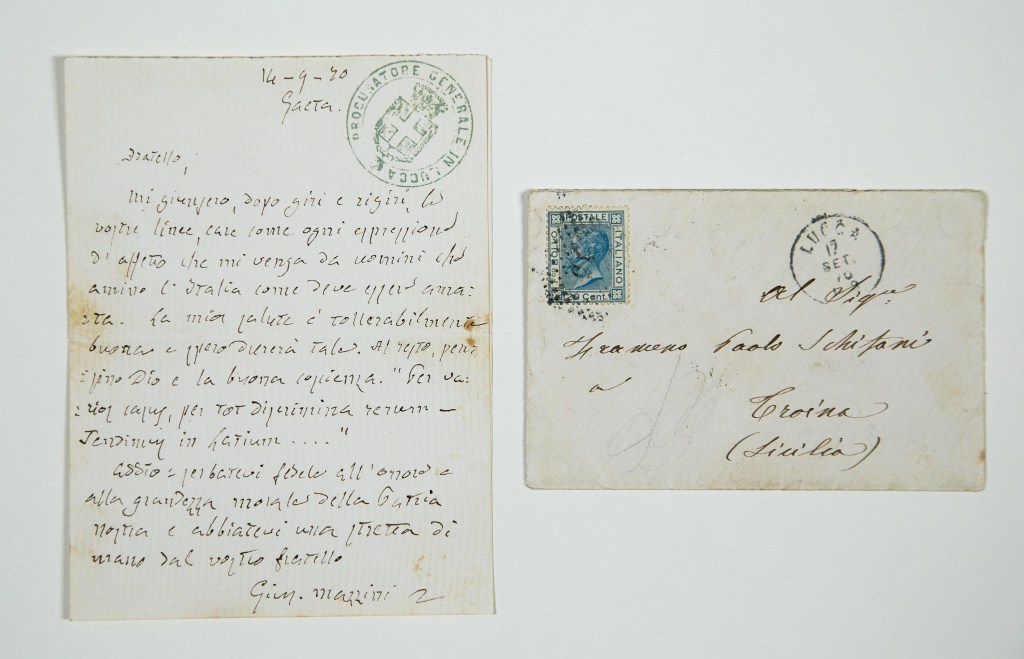 14-9-70
Gaeta.
PROCURATORE GENERALE IN LUCCA
Fratello,
Mi giunsero, dopo giri e rigiri, le
vostre linee, care come ogni espressione
d'affetto che mi venga da uomini che
amino l'Italia come deve essere ama-
ta. La mia salute è tollerabilmente
buona e spero durerà tale. Al resto, pen-
sino Dio e la buona coscienza. "Per va-
rios casus, per tot discrimina rerum -
Tendimus in Latium ...."
Addio: serbatevi fedele all'onore e
alla grandezza morale della Patria
nostra e abbiatevi una stretta di
mano dal vostro fratello
Gius. Mazzini
POSTALE
ITALIANO
20 Cent.
LUCCA
17
SET.
70
Al Sigr.
Paolo Schifani
a
Troina
(Sicilia)